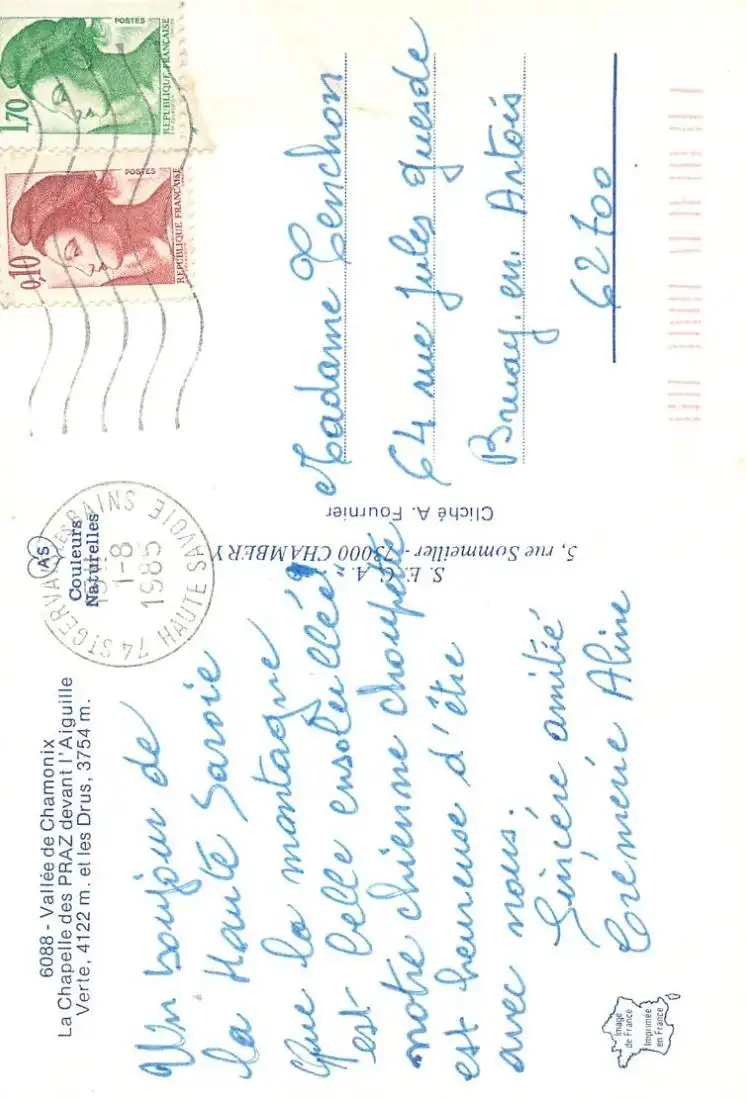 6088 - Vallée de Chamonix
La Chapelle des PRAZ devant l'Aiguille
Verte, 4122 m. et les Drus, 3754 m.
Un bonjour de
la Haute Savoie
Que la montagne
est belle ensoleillée
notre chienne choupette
est heureuse d'être
avec nous.
Sincère amitié
Crémerie Aline
Image
de France
Imprimée
en France
AS
Couleurs
Naturelles
74 ST GERVAIS LES BAINS
1-8
1985
HAUTE SAVOIE
S. E. C. A.
5, rue Sommeiller - 73000 CHAMBERY
Cliché A. Fournier
0,10
POSTES
REPUBLIQUE FRANÇAISE
1,70
POSTES
REPUBLIQUE FRANÇAISE
Madame Tenchon
64 rue Jules Guesde
Bruay. en. Artois
62700